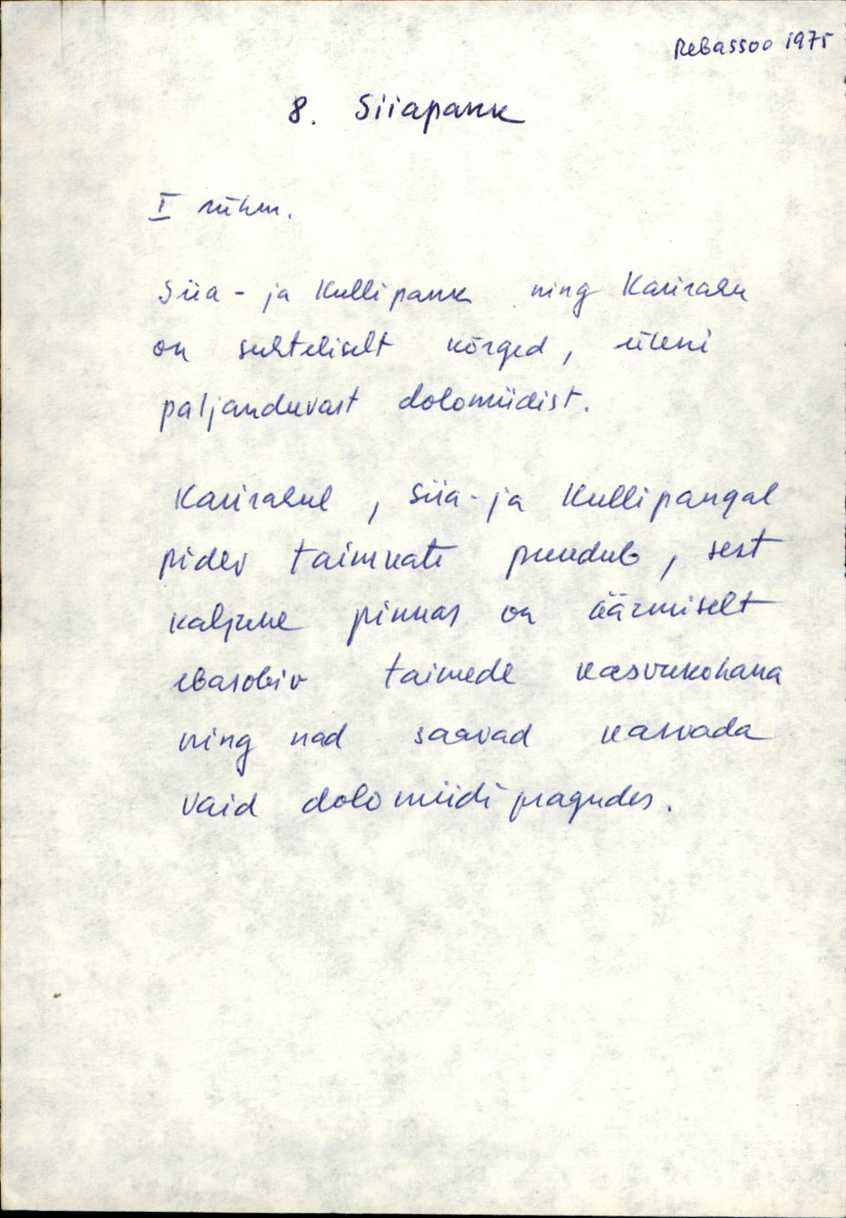 Rebassoo 1975
8. Siiapank
I rühm.
Siia- ja Kullipank ning Karirahu
on suhteliselt kõrged, üleni
paljanduvast dolomiidist.
Karirahul, Siia- ja Kullipangal
pidev taimkate puudub, sest
kaljune pinnas on äärmiselt
ebasobiv taimede kasvukohana
ning nad saavad kasvada
vaid dolomiidipragudes.